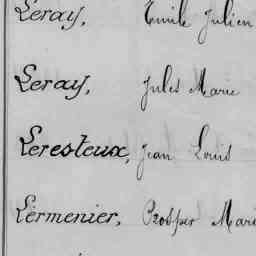 Leray, Emile Julien
Leray, Jules Marie
Leresteux, Jean Louis
Lermenier, Prosper Mari